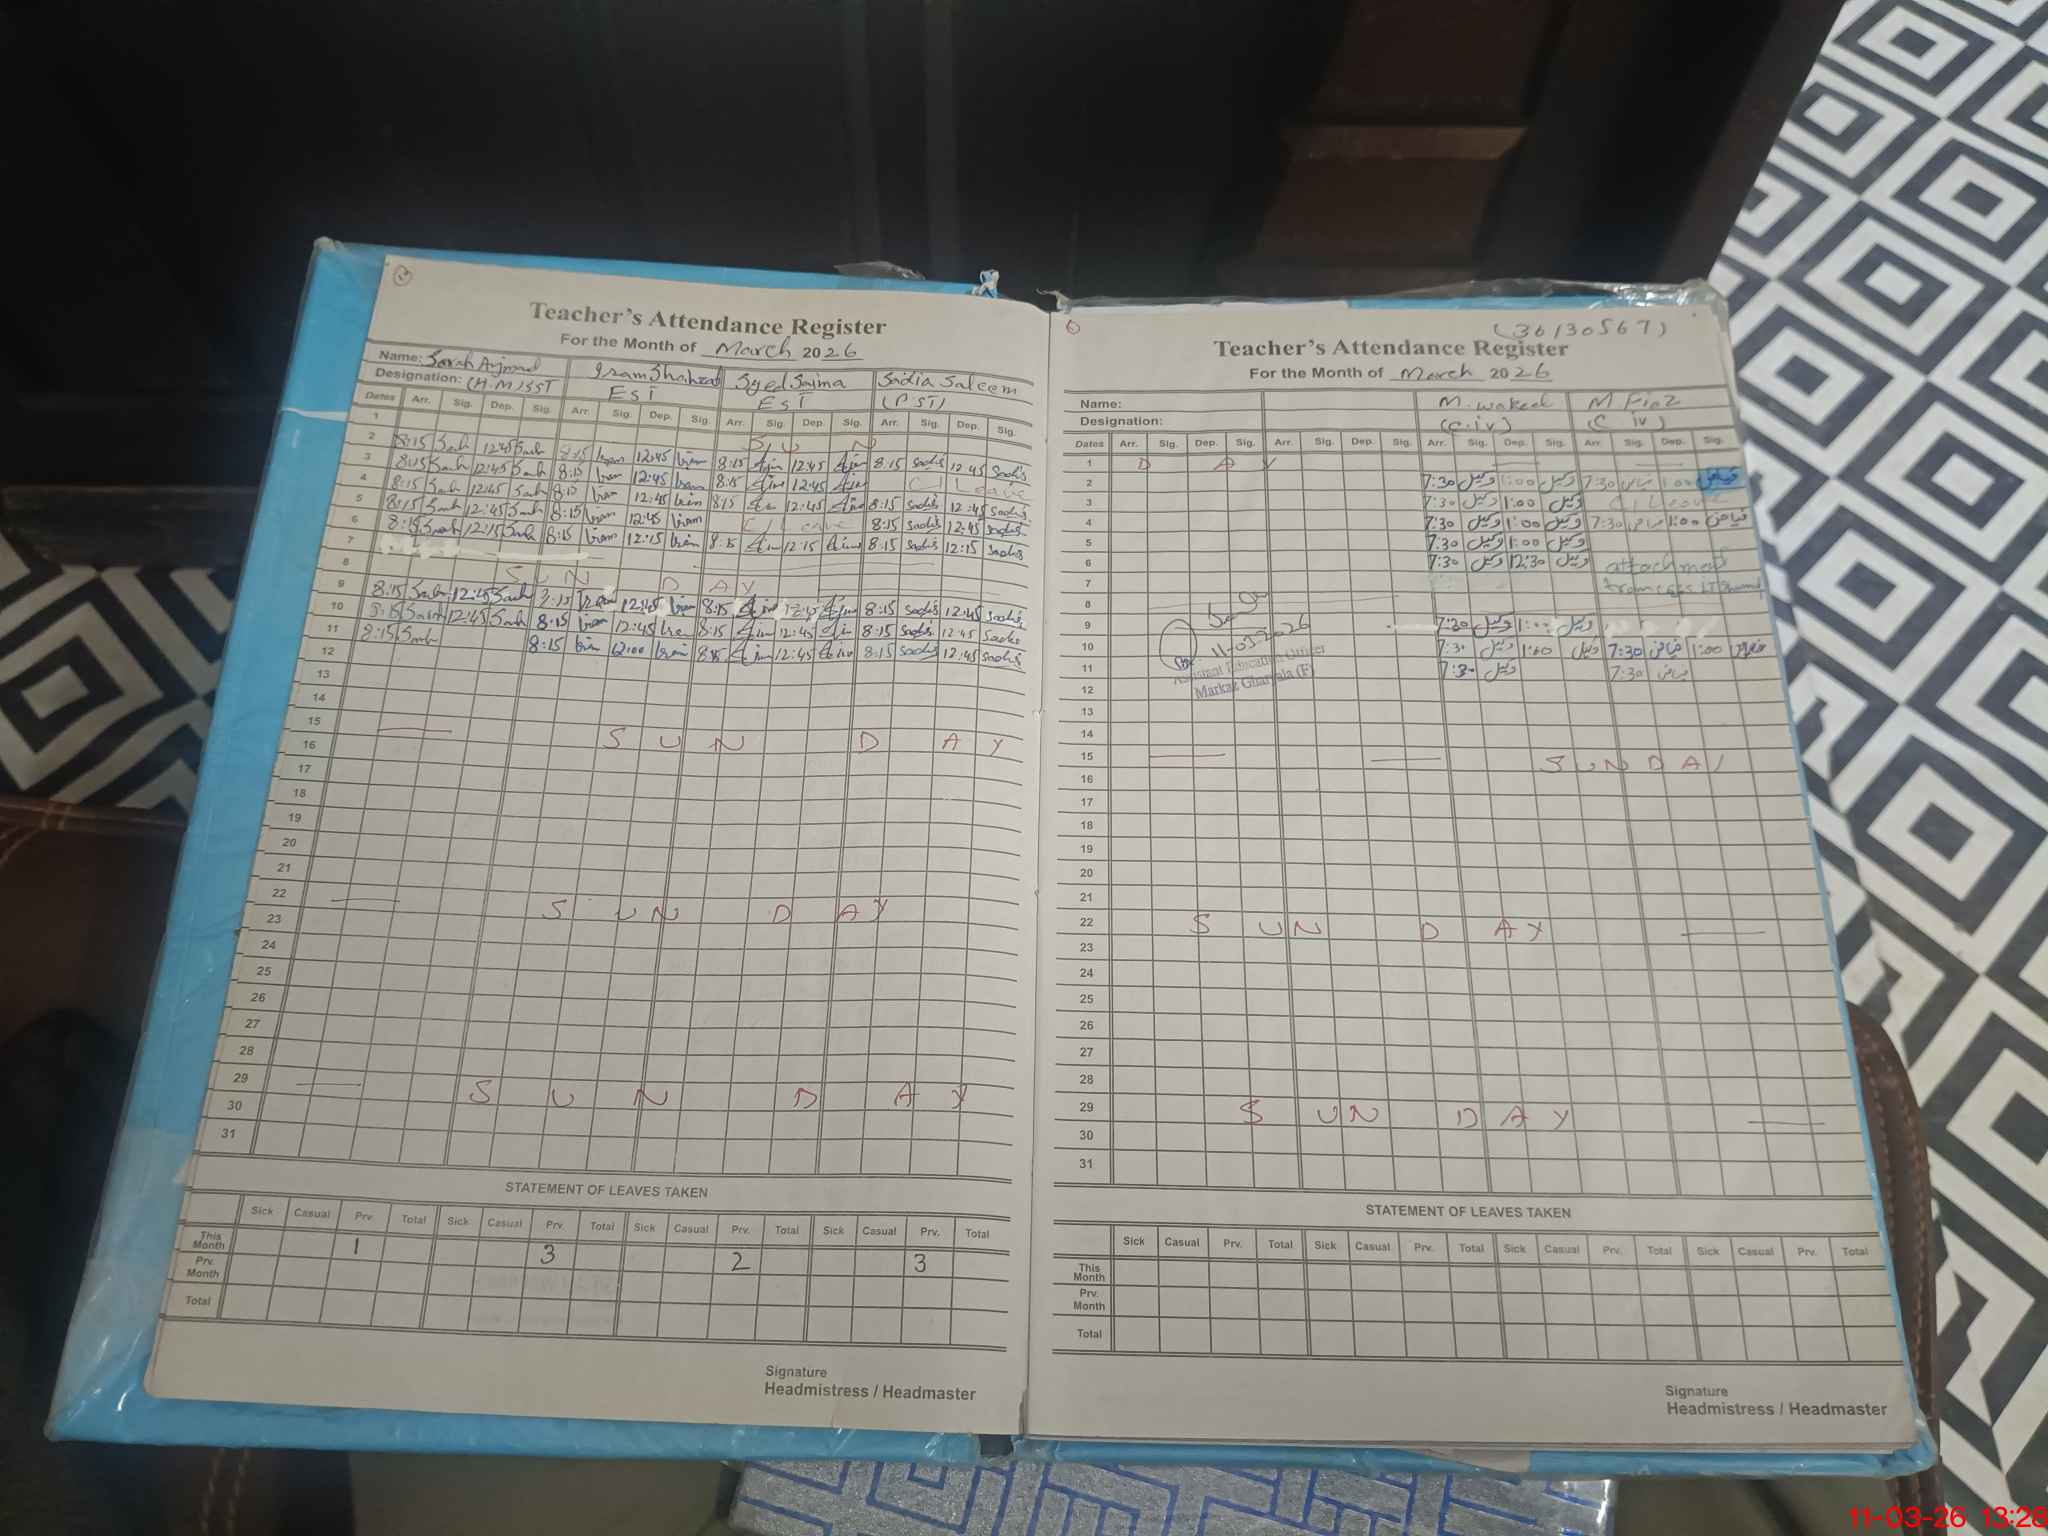 Teacher's Attendance Register
For the Month of March 2026
Name: Sarah Arjmand Iram Shahzad Syed Saima Sadia Saleem
Designation: (H.M) SST EST EST (PST)
Dates Arr. Sig. Dep. Sig. Arr. Sig. Dep. Sig. Arr. Sig. Dep. Sig. Arr. Sig. Dep. Sig.
1 S U N
2 8:15 Sarah 12:45 Sarah 8:15 Iram 12:45 Iram 8:15 12:45 8:15 Sadia 12:45 Sadia
3 8:15 Sarah 12:45 Sarah 8:15 Iram 12:45 Iram 8:15 12:45 C/Leave
4 8:15 Sarah 12:45 Sarah 8:15 Iram 12:45 Iram 8:15 12:45 8:15 Sadia 12:45 Sadia
5 8:15 Sarah 12:45 Sarah 8:15 Iram 12:45 Iram C/Leave 8:15 Sadia 12:45 Sadia
6 8:15 Sarah 12:15 Sarah 8:15 Iram 12:15 Iram 8:15 12:15 8:15 Sadia 12:15 Sadia
7
8 S U N D A Y
9 8:15 Sarah 12:45 Sarah 8:15 Iram 12:45 Iram 8:15 12:45 8:15 Sadia 12:45 Sadia
10 8:15 Sarah 12:45 Sarah 8:15 Iram 12:45 Iram 8:15 12:45 8:15 Sadia 12:45 Sadia
11 8:15 Sarah 8:15 Iram 12:00 Iram 8:15 12:45 8:15 Sadia 12:45 Sadia
12
13
14
15 S U N D A Y
16
17
18
19
20
21
22 S U N D A Y
23
24
25
26
27
28
29 S U N D A Y
30
31
STATEMENT OF LEAVES TAKEN
Sick Casual Prv. Total Sick Casual Prv. Total Sick Casual Prv. Total Sick Casual Prv. Total
This Month 1 3 2 3
Prv. Month
Total
Signature
Headmistress / Headmaster
(36130567)
Teacher's Attendance Register
For the Month of March 2026
Name: M. Wakeel M. Fiaz
Designation: (C.iv) (C iv)
Dates Arr. Sig. Dep. Sig. Arr. Sig. Dep. Sig. Arr. Sig. Dep. Sig. Arr. Sig. Dep. Sig.
1 D A Y
2 7:30 وکیل 1:00 وکیل 7:30 فیاض 1:00 فیاض
3 7:30 وکیل 1:00 وکیل C/Leave
4 7:30 وکیل 1:00 وکیل 7:30 فیاض 1:00 فیاض
5 7:30 وکیل 1:00 وکیل
6 7:30 وکیل 12:30 وکیل attachment
7 from
8
9 7:30 وکیل 1:00 وکیل
10 7:30 وکیل 1:00 وکیل 7:30 فیاض 1:00 فیاض
11 7:30 وکیل 7:30 فیاض
11-03-2026
Assistant Education Officer
Markaz Gharyala (F)
12
13
14
15 S U N D A Y
16
17
18
19
20
21
22 S U N D A Y
23
24
25
26
27
28
29 S U N D A Y
30
31
STATEMENT OF LEAVES TAKEN
Sick Casual Prv. Total Sick Casual Prv. Total Sick Casual Prv. Total Sick Casual Prv. Total
This Month
Prv. Month
Total
Signature
Headmistress / Headmaster
11-03-26 13:28